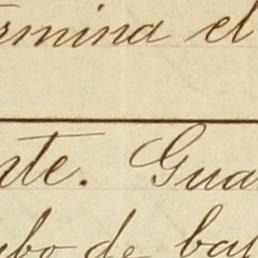 rmina el
nte. Gua
mbo de bal